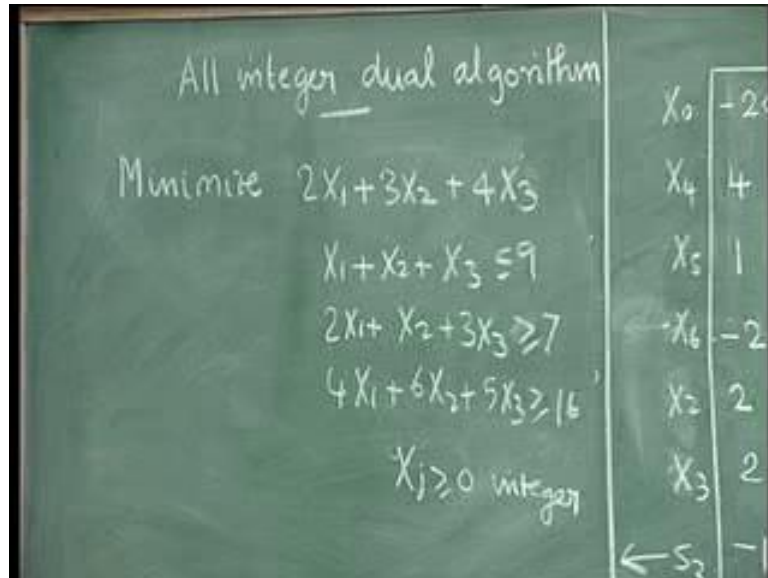 All integer dual algorithm
Minimize 2X₁+3X₂+4X₃
X₁+X₂+X₃≤9
2X₁+X₂+3X₃≥7
4X₁+6X₂+5X₃≥16
Xj≥0 integer
X₀
X₄ 4
X₅ 1
X₆ -2
X₂ 2
X₃ 2